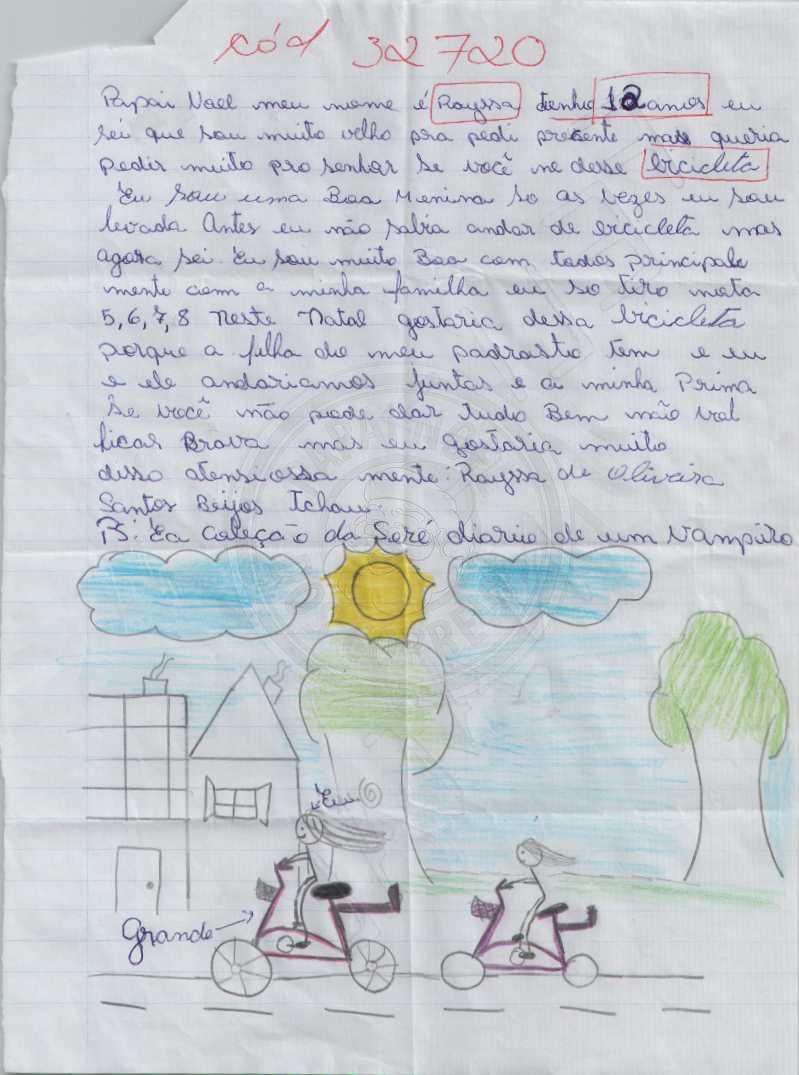 Cód 32720
Papai Noel meu nome é Rayssa tenho 12 anos eu
sei que sou muito velho pra pedi presente mas queria
pedir muito pro senhor se você me desse bicicleta
Eu sou uma Boa Menina so as vezes eu sou
levada Antes eu não sabia andar de bicicleta mas
agora sei. Eu sou muito Boa com todos principale
mente com a minha familha eu so tiro nota
5,6,7,8 Neste Natal gostaria dessa bicicleta
porque a filha do meu padrasto tem e eu
e ele andariamos juntas e a minha Prima
Se você não pode dar tudo Bem não vol
ficar Brava mas eu gostaria muito
disso atensiossa mente: Rayssa de Oliveira
Santos Beijos Tchau.
PS: Ea Coleção da Seré diario de um Vampiro
Eu
Grande